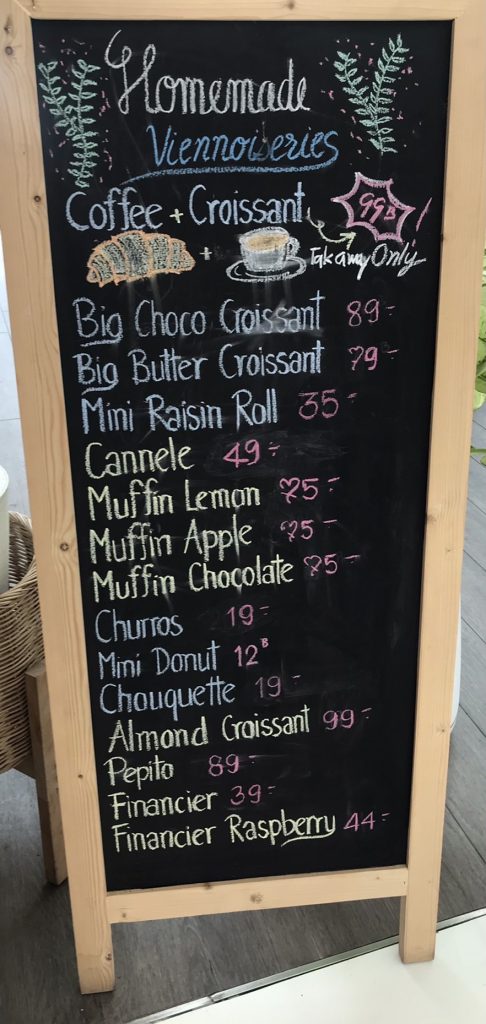 Homemade
Viennoiseries
Coffee + Croissant 99฿!
+ Takaway Only
Big Choco Croissant 89.-
Big Butter Croissant 79.-
Mini Raisin Roll 35.-
Cannele 49.-
Muffin Lemon 75.-
Muffin Apple 75.-
Muffin Chocolate 75.-
Churros 19.-
Mini Donut 12฿
Chouquette 19.-
Almond Croissant 99.-
Pepito 89.-
Financier 39.-
Financier Raspberry 44.-